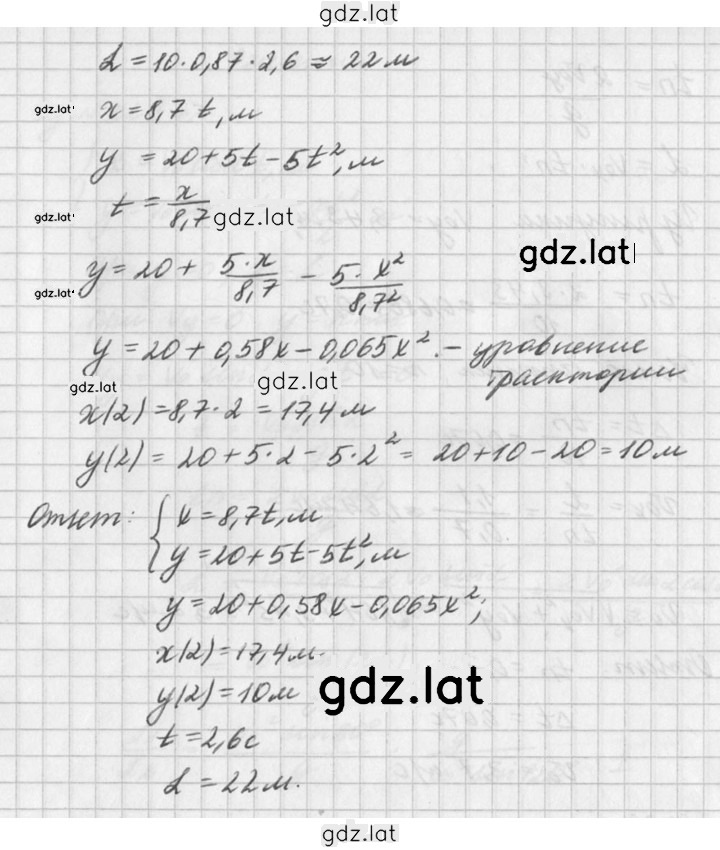 gdz.lat
L = 10·0,87·2,6 ≈ 22 м
gdz.lat
x = 8,7 t, м
y = 20 + 5t − 5t², м
gdz.lat
t = x/8,7 gdz.lat
gdz.lat
gdz.lat
y = 20 + 5·x/8,7 − 5·x²/8,7²
y = 20 + 0,58x − 0,065x². – уравнение
траектории
gdz.lat gdz.lat
x(2) = 8,7·2 = 17,4 м
y(2) = 20 + 5·2 − 5·2² = 20 + 10 − 20 = 10 м
Ответ: { x = 8,7t, м
y = 20 + 5t − 5t², м
y = 20 + 0,58x − 0,065x²;
x(2) = 17,4 м.
y(2) = 10 м
gdz.lat
t = 2,6 с
L = 22 м.
gdz.lat